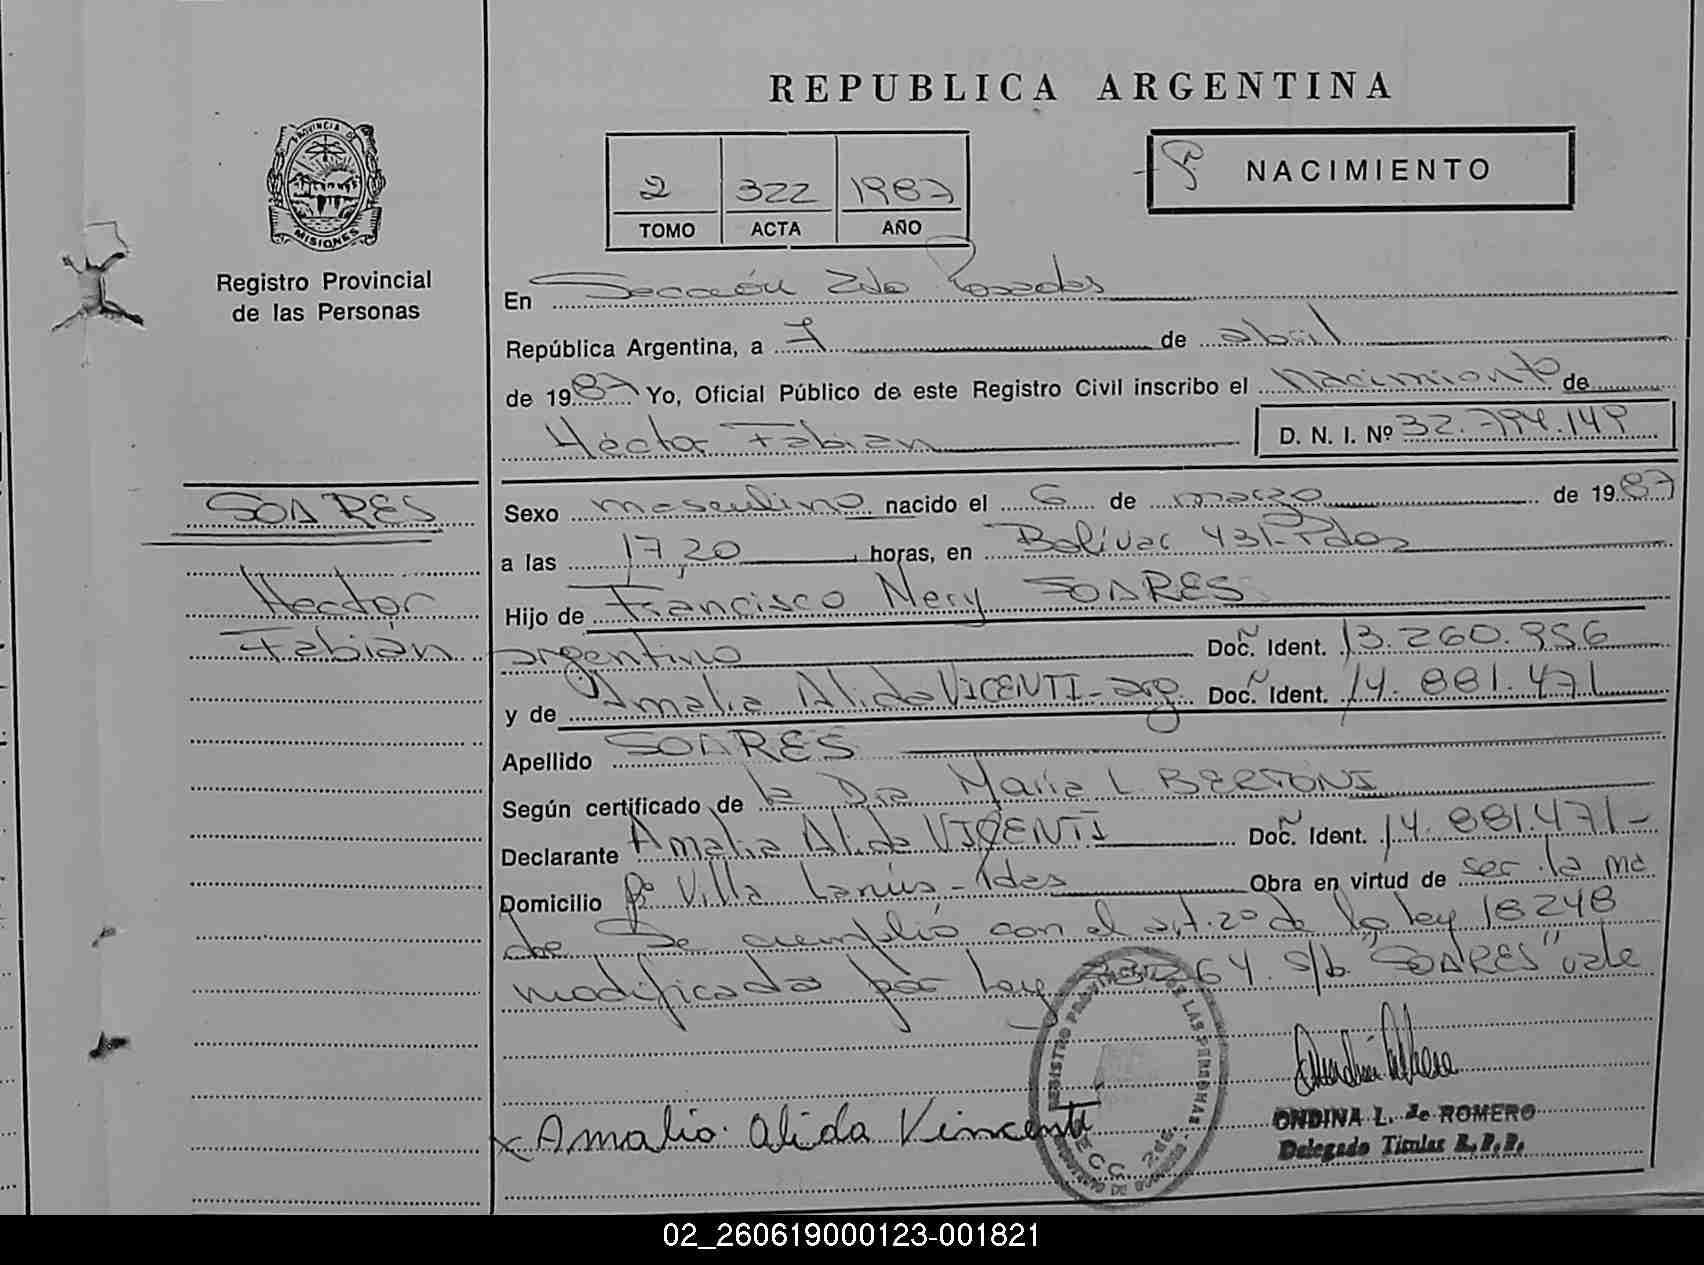 REPUBLICA ARGENTINA
PROVINCIA DE
MISIONES
Registro Provincial
de las Personas
2 322 1987
TOMO ACTA AÑO
NACIMIENTO
En Sección 2da Posadas
República Argentina, a 7 de abril
de 1987 Yo, Oficial Público de este Registro Civil inscribo el nacimiento de
Héctor Fabián D. N. I. Nº 32.794.149
SOARES
Hector
Fabián
Sexo masculino nacido el 6 de marzo de 1987
a las 17,20 horas, en Bolívar 431-Pdas
Hijo de Francisco Nery SOARES
argentino Doc. Ident. 13.260.956
y de Amalia Alida VICENTI-arg Doc. Ident. 14.881.471
Apellido SOARES
Según certificado de la Dra María L BERTONI
Declarante Amalia Alida VICENTI Doc. Ident. 14.881.471-
Domicilio Bº Villa Lanús-Pdas Obra en virtud de ser la ma
dre Se cumplió con el art. 2º de la ley 18248
modificada por ley 23264. s/b. "SOARES" vale
REGISTRO PROVINCIAL DE LAS PERSONAS
SECC. 2da.
x Amalia Alida Vincenti
ONDINA L. de ROMERO
Delegado Titular R.P.P.
02_260619000123-001821